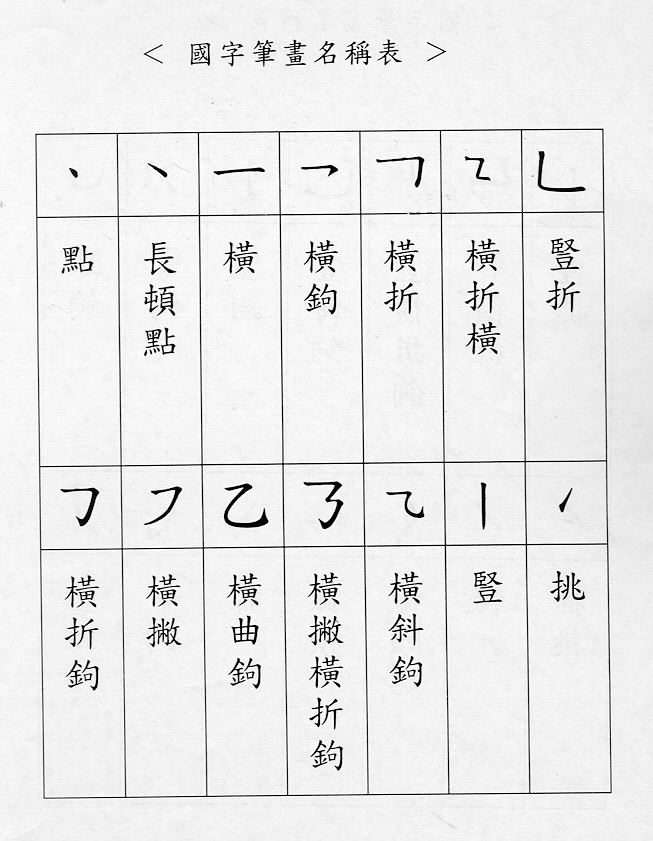 < 國字筆畫名稱表 >
丶 ㇔ 一 乛 𠃍 ㇅ 𠃊
點 長頓點 橫 橫鉤 橫折 橫折橫 豎折
𠃌 ㇇ 乙 ㇡ ⺄ 丨 ㇀
橫折鉤 橫撇 橫曲鉤 橫撇橫折鉤 橫斜鉤 豎 挑